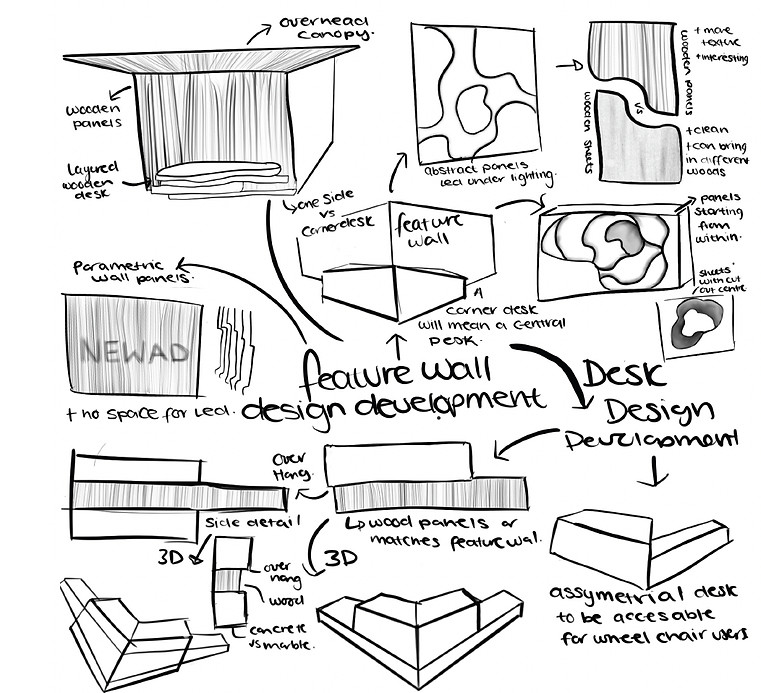 overhead
canopy.
wooden
panels
Layered
wooden
desk
one side
vs
corner desk
feature
wall
abstract panels
Led under lighting.
wooden panels
vs
wooden sheets
+ more
texture
+ interesting
+ clean
+ can bring
in different
woods
panels
starting
from
within.
sheets
with cut
out centre
corner desk
will mean a central
peak.
Parametric
wall panels.
NEWAD
+ no space for Led.
feature wall
design development
Desk
Design
Development
Over
Hang.
side detail
wood panels or
matches feature wall.
3D
over
hang
wood
concrete
vs marble.
3D
assymetrial desk
to be accesable
for wheel chair users